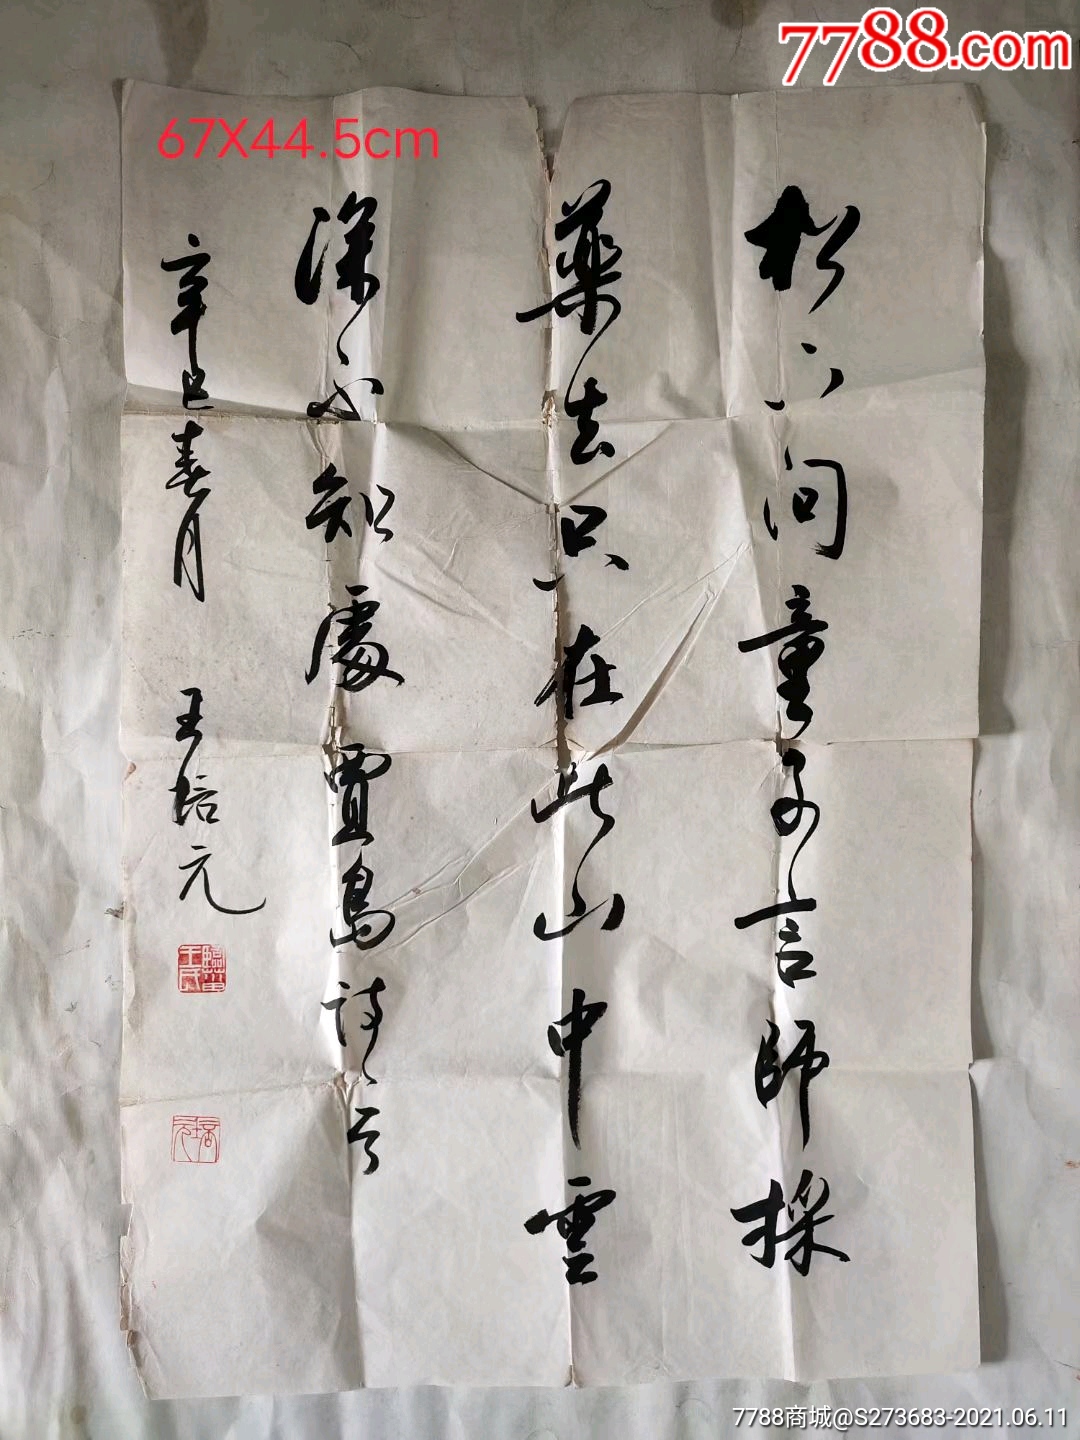 7788.com
67X44.5cm
松下问童子言師採
藥去只在此山中雲
深不知處賈島詩一首
辛巳春月 王培元
培元
7788商城@S273683-2021.06.11